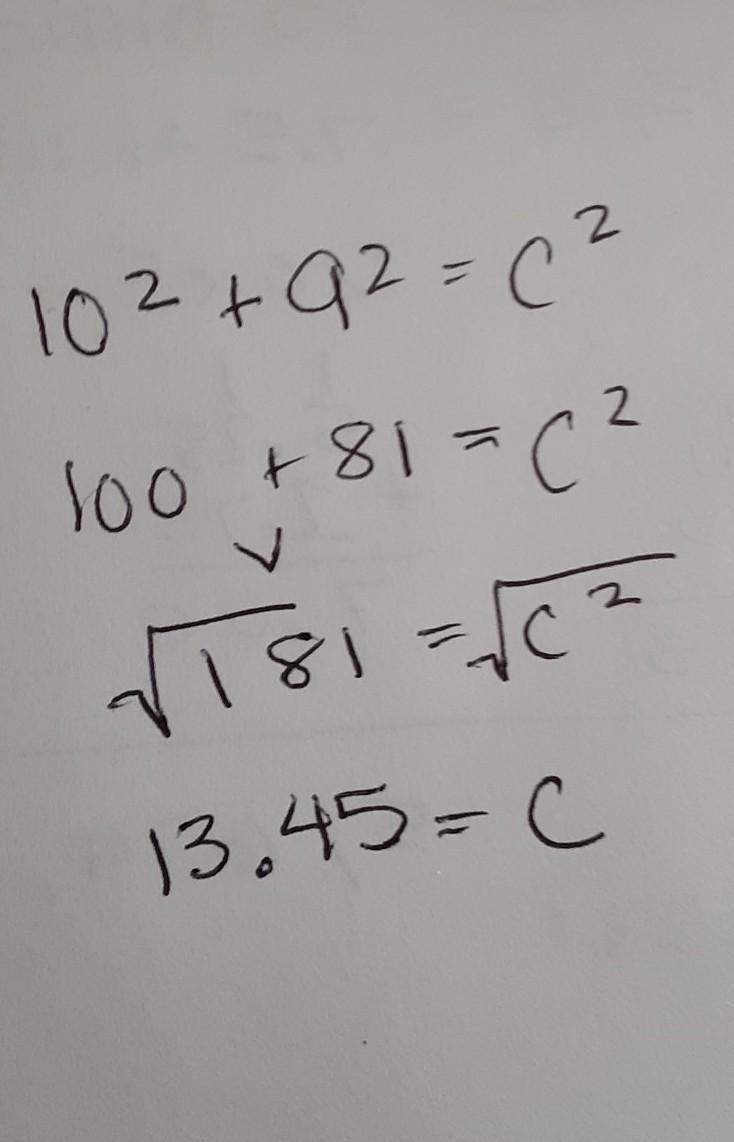 10² + 9² = C²
100 + 81 = C²
√181 = √C²
13.45 = C